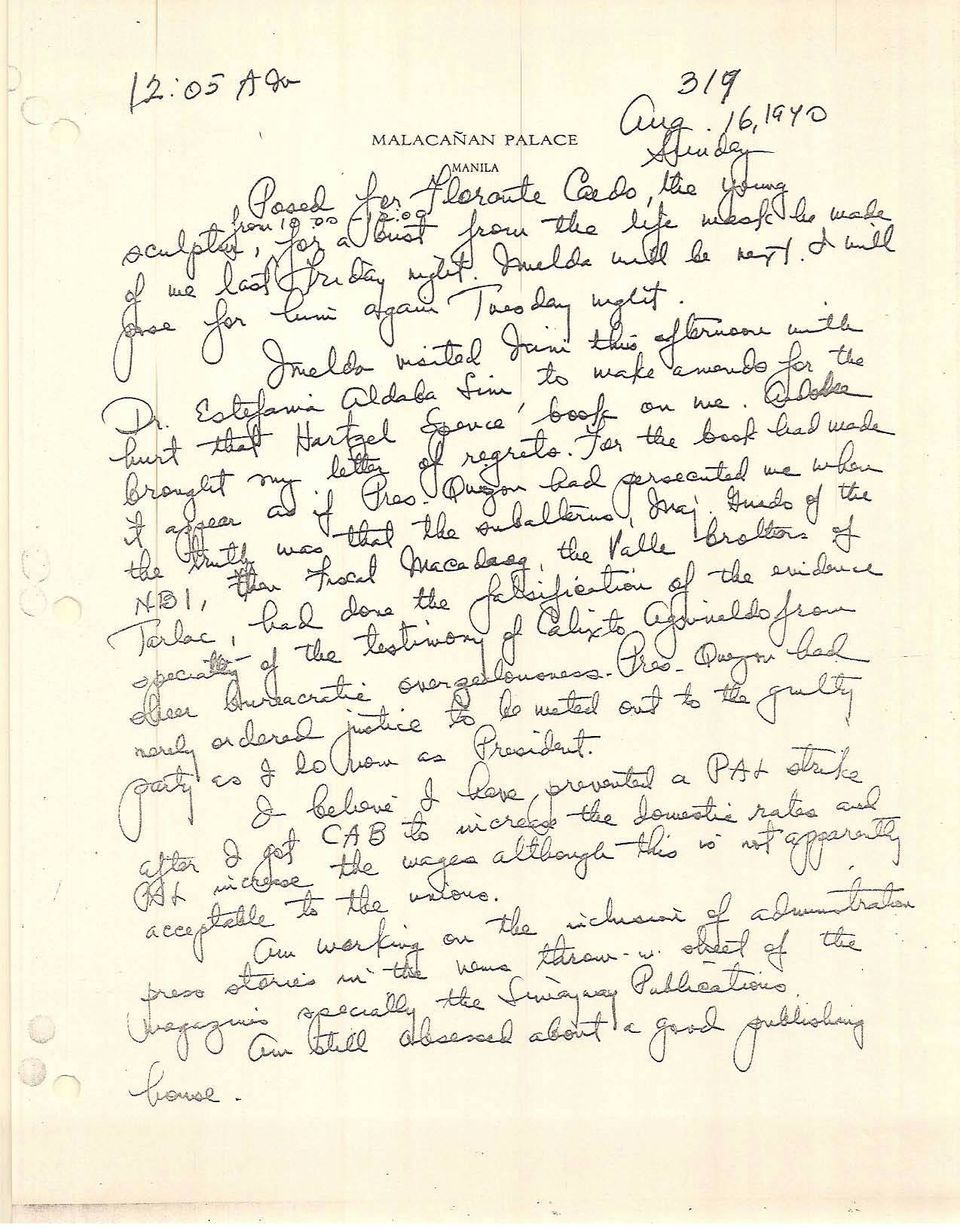 12:05 AM
319
Aug. 16, 1970
Sunday
MALACAÑAN PALACE
MANILA
Posed for Florante Caedo, the young
from 10:00 - 12:00
sculptor, for a bust from the life mask he made
of me last Friday night. Imelda will be next. I will
pose for him again Tuesday night.
Imelda visited Nini this afternoon with
Dr. Estefania Aldaba Lim, to make amends for the
hurt that Hartzel Spence book on me. Aldaba
brought my letter of regrets. For the book had made
it appear as if Pres. Quezon had persecuted me when
the truth was that the subalterns, Maj. Guido of the
NBI, then Fiscal Macadaeg, the Valle brothers of
Tarlac, had done the falsification of the evidence
specially of the testimony of Calixto Aguinaldo from
sheer bureacratic overzealousness. Pres. Quezon had
merely ordered justice to be meted out to the guilty
party as I do now as President.
I believe I have prevented a PAL strike
after I got CAB to increase the domestic rates and
PAL increase the wages although this is not apparently
acceptable to the unions.
Am working on the inclusion of administration
press stories in the news throw-in sheet of the
magazines specially the Liwayway Publications.
Am still obsessed about a good publishing
house.